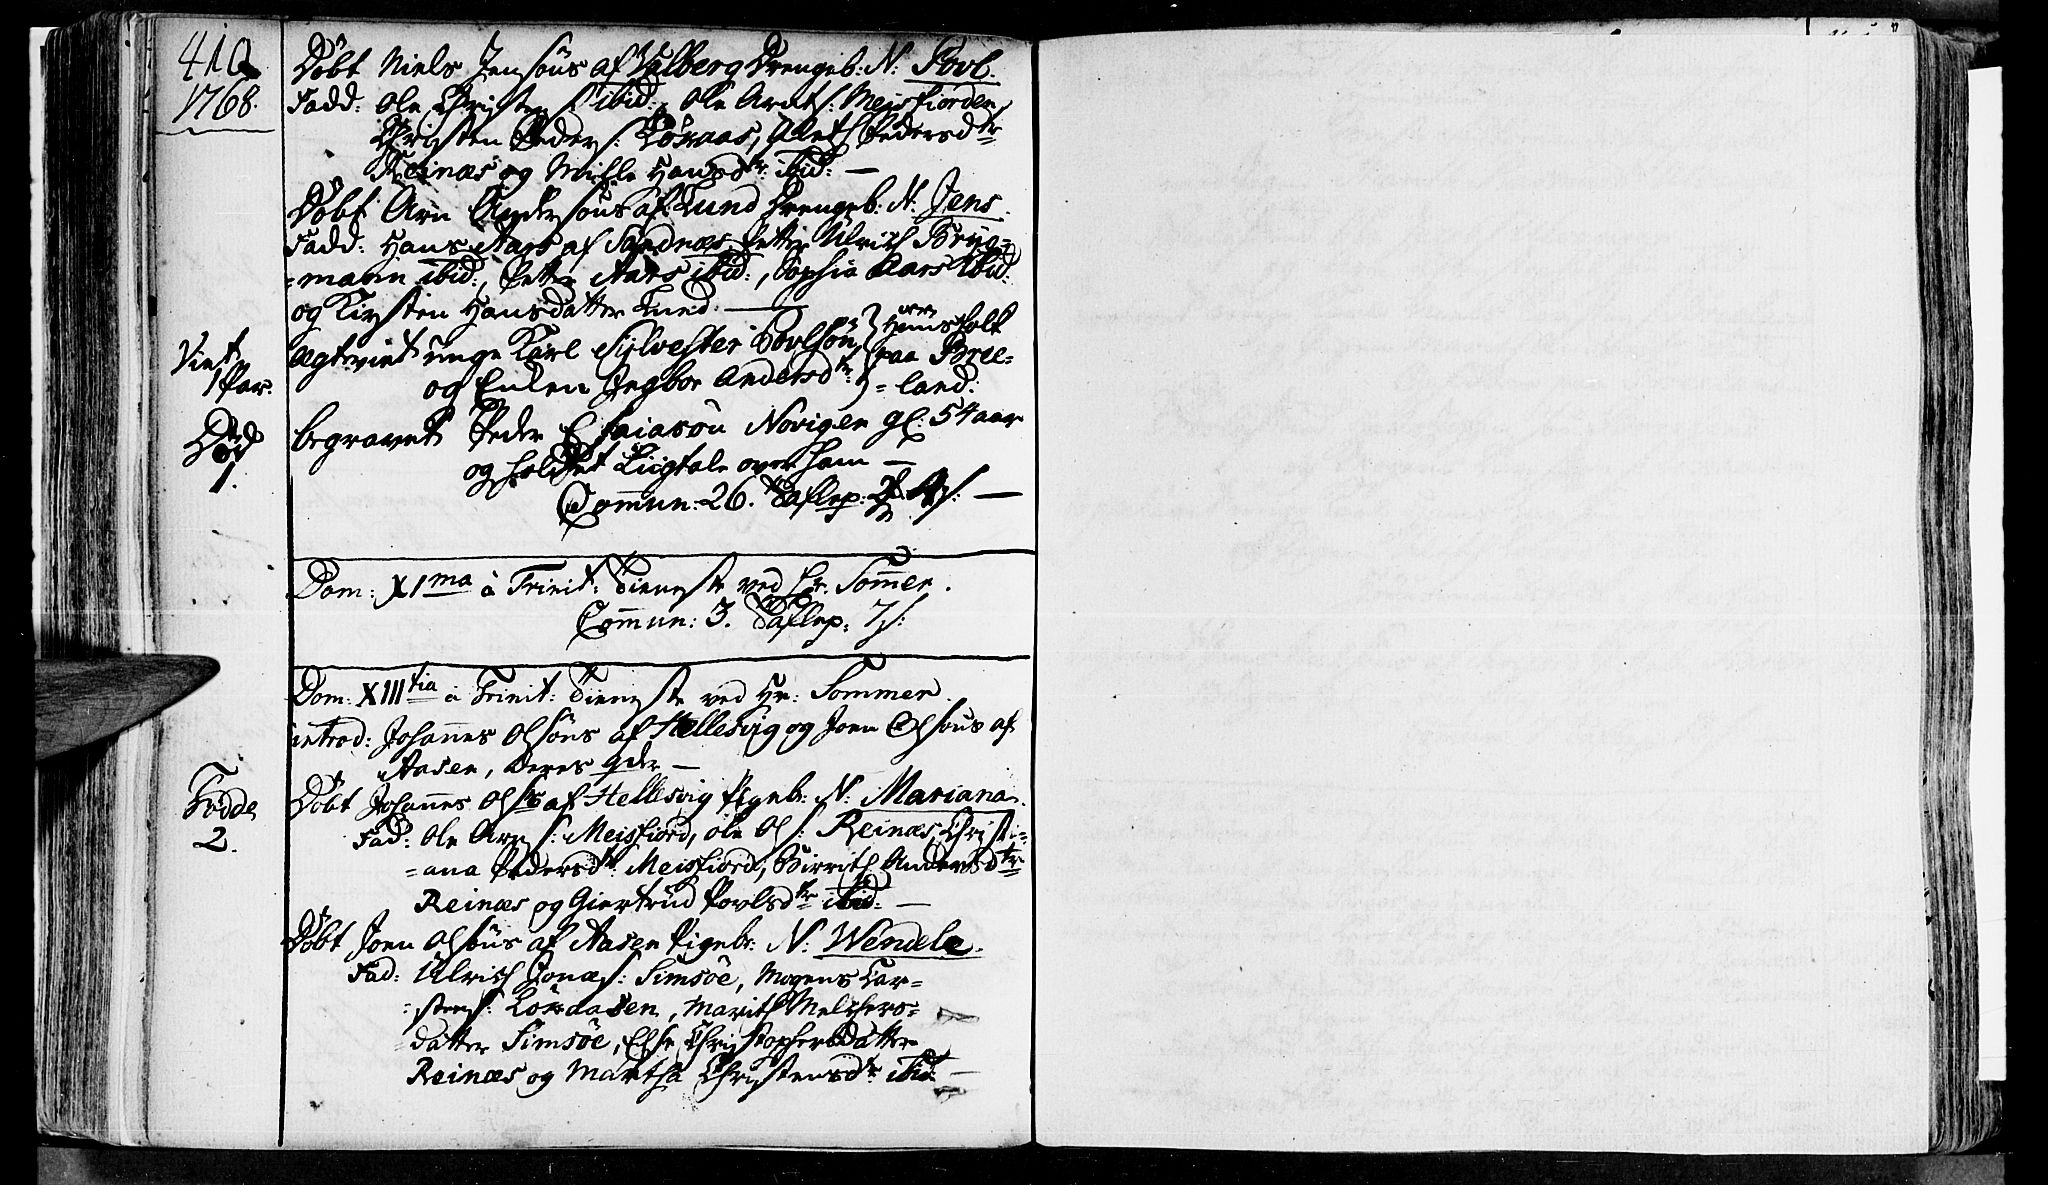 410
1768.
Döbt Niels Jensöns af Valberg Drengeb: N: Povl.
Fadd: Ole Christens: ibid:, Ole Arnts: Meisfiorden,
Christen Peders: Lönaas, Pedersdtr
Reinæs og Mille Hansdtr: ibid: —
Döbt Arn Andersöns af Lund Drengeb: N: Jens.
Fadd: Hans Aars af Sandnæs, Petter Ulrich Bryg-
-mann ibid:, Petter Aars ibid:, Sophia Aars ibid:
og Kirsten Hansdatter Lund. —
Viet
1 Par.
Ægteviet unge Karl Sylvester Povlsön
og Enken Ingbor Andersdtr:
Hans holt
paa Bree-
-land:
Död
1.
begravet Peder Esaiasön Novigen gl: 54 aar
og holdet Liigtale over ham —
Commun: 26. Taflep:
Dom: XIma à Trinit: Tieneste ved Hr. Sommer.
Commun: 3. Taflep: 7s:
Dom: XIIItia à Trinit: Tieneste ved Hr: Sommer.
introd: Johannes Olsöns af Hellesvig og Joen Olsöns af
Aasen, Deres qder —
Födde
2.
Döbt Johannes Ols: af Hellesvig Pigeb: N: Mariana.
Fad: Ole Arns: Meisfiord, Ole Ols: Reinæs, Christi-
-ana Pedersdtr: Meisfiord, Birrith Andersdtr
Reinæs og Giertrud Povlsdtr ibid: —
Döbt Joen Olsöns af Aasen Pigeb: N: Wendele.
Fad: Ulrich Jonæs: Simsöe, Mogens Car-
-stens: Löndasen, Marith Melchers-
-datter Simsöe, Else Christophersdatter
Reinæs og Martha Christensdtr: ibid: —